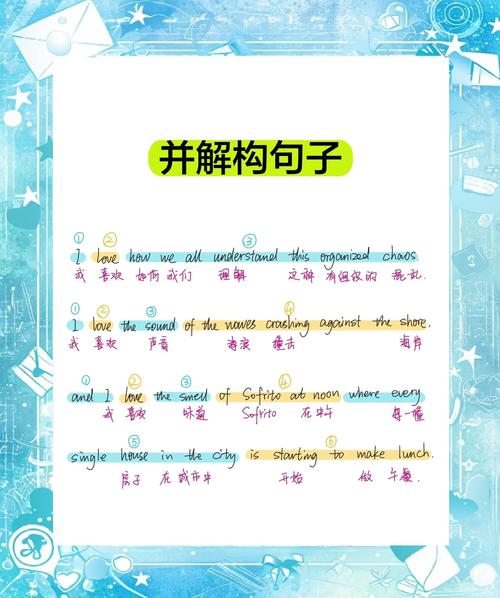 并解构句子
① ② ③
I love how we all understand this organized chaos.
我 喜欢 如何 我们 理解 这种 有组织的 混乱.
① ② ③ ④
I love the sound of the waves crashing against the shore.
我 喜欢 声音 海浪 撞击 海岸
① ② ③ ④
and I love the smell of Sofrito at noon where every
我 喜欢 味道 Sofrito 在中午 每一幢
⑤ ⑥
single house in the city is starting to make lunch.
房子 在城市中 开始 做 午餐.